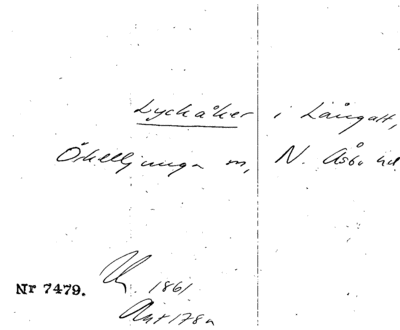 Lyckåker i Långalt,
Örkelljunga sn, N. Åsbo hd
Nr 7479.
1861
Ant 178